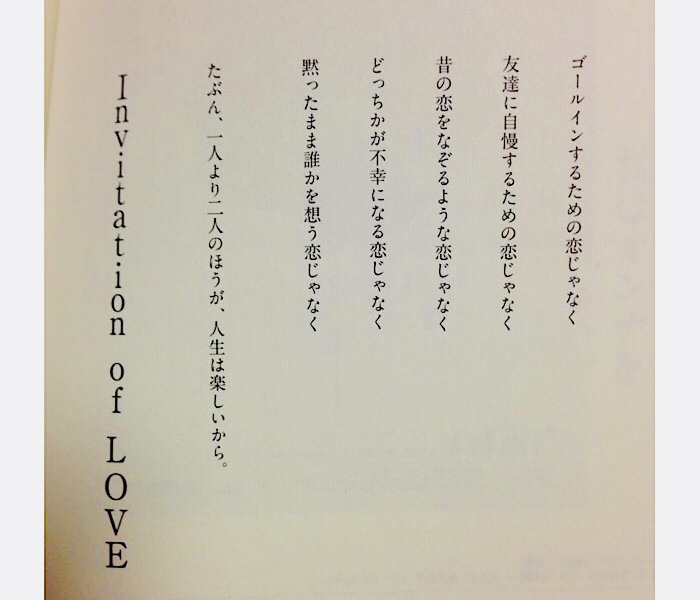 ゴールインするための恋じゃなく
友達に自慢するための恋じゃなく
昔の恋をなぞるような恋じゃなく
どっちかが不幸になる恋じゃなく
黙ったまま誰かを想う恋じゃなく
たぶん、一人より二人のほうが、人生は楽しいから。
Invitation of LOVE